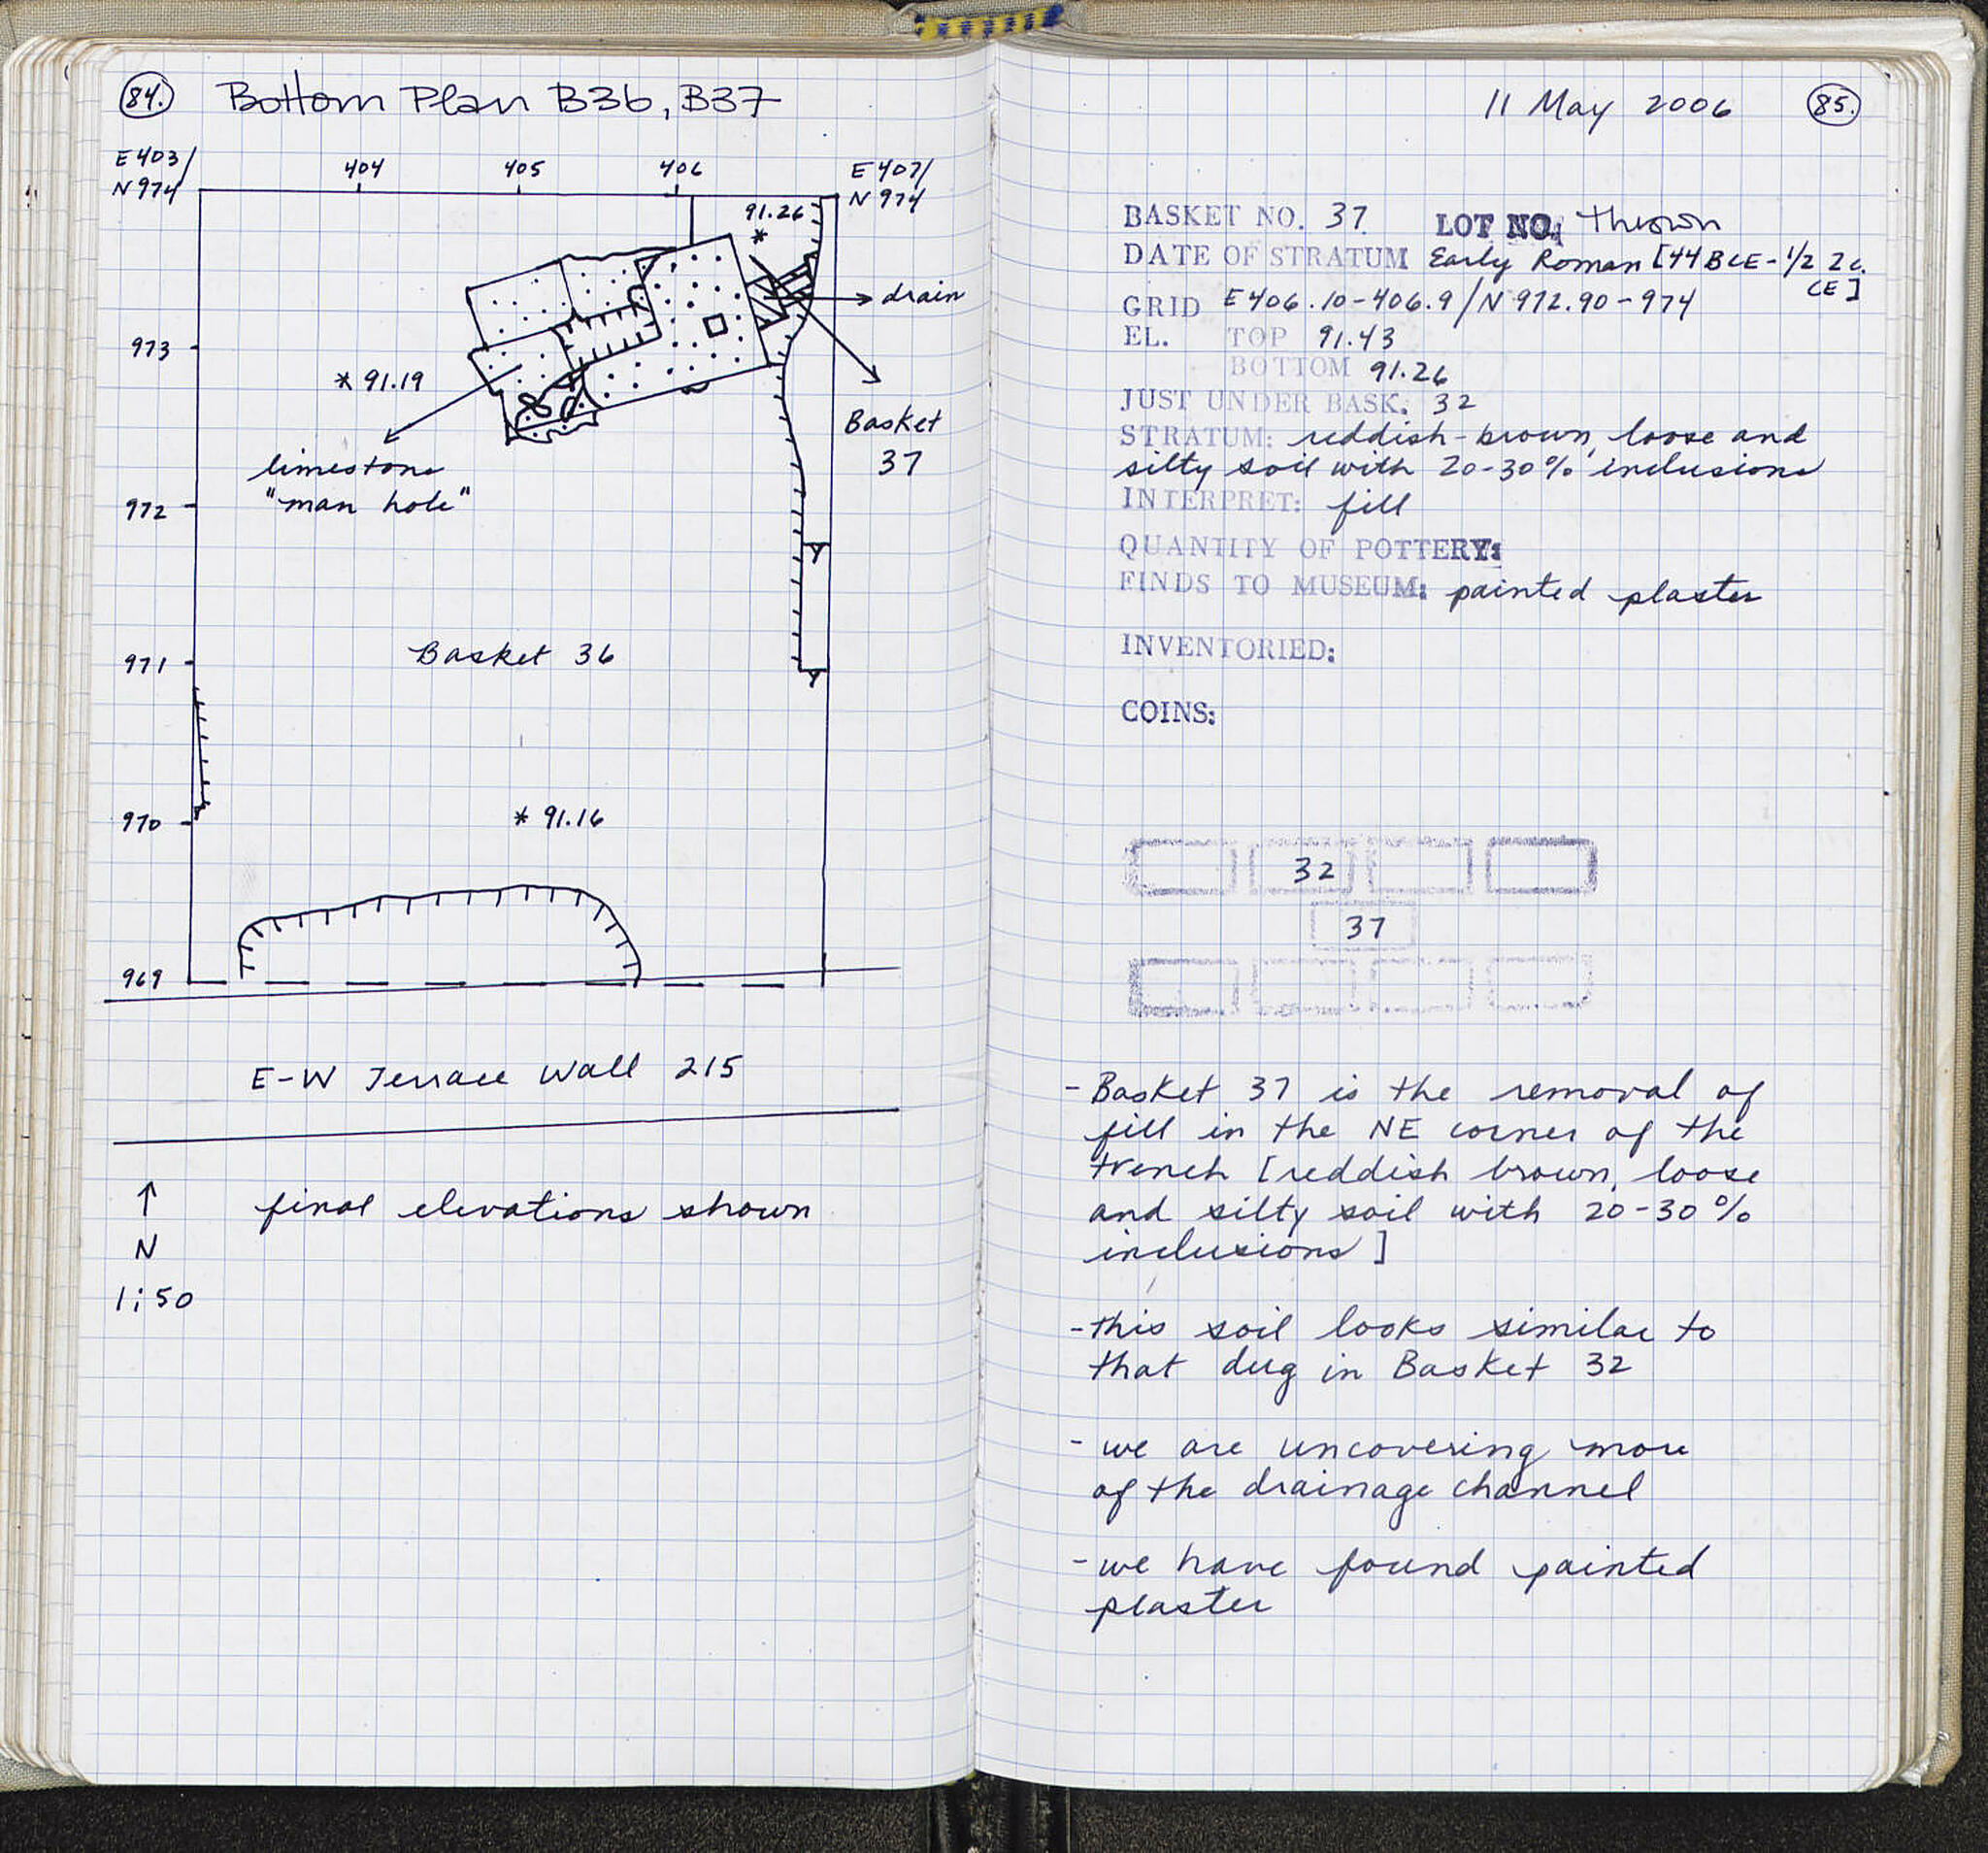 84. Bottom Plan B36, B37
E403/
N974
404
405
406
E407/
N974
91.26
*
drain
973
* 91.19
Basket
37
limestone
"man hole"
972
971
Basket 36
970
* 91.16
969
E-W Terrace Wall 215
↑
N
1:50
final elevations shown
11 May 2006 85.
BASKET NO. 37 LOT NO. Thrown
DATE OF STRATUM Early Roman [44 BCE - 1/2 2c.
CE]
GRID E406.10-406.9/N972.90-974
EL. TOP 91.43
BOTTOM 91.26
JUST UNDER BASK. 32
STRATUM: reddish-brown, loose and
silty soil with 20-30% inclusions
INTERPRET: fill
QUANTITY OF POTTERY:
FINDS TO MUSEUM: painted plaster
INVENTORIED:
COINS:
32
37
- Basket 37 is the removal of
fill in the NE corner of the
trench [reddish brown, loose
and silty soil with 20-30%
inclusions]
- this soil looks similar to
that dug in Basket 32
- we are uncovering more
of the drainage channel
- we have found painted
plaster